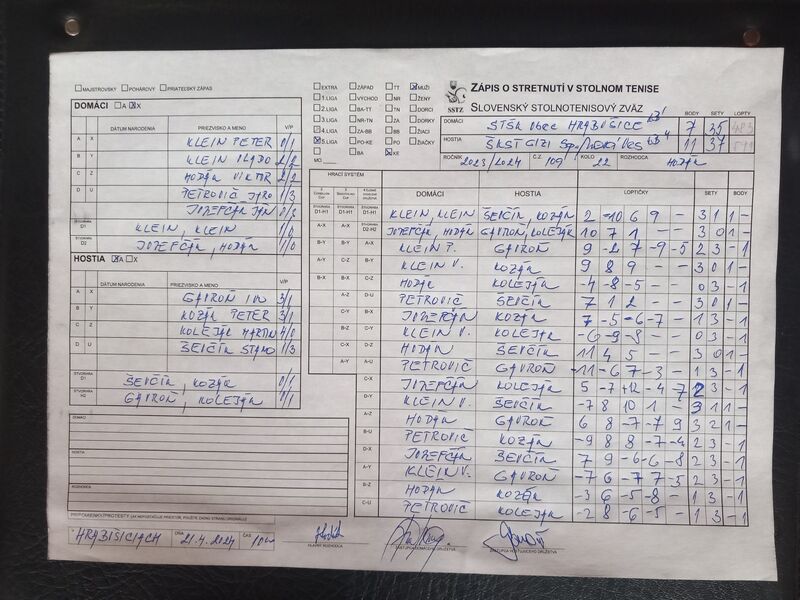 MAJSTROVSKÝ POHÁROVÝ PRIATEĽSKÝ ZÁPAS
DOMÁCI A X
DÁTUM NARODENIA PRIEZVISKO A MENO V/P
A X KLEIN PETER 0/1
B Y KLEIN VLADO 2/2
C Z HODÁK VIKTOR 2/2
D U PETROVIČ JARO 1/3
JOZEFČÁK JÁN 0/3
ŠTVORHRA D1 KLEIN, KLEIN 1/0
ŠTVORHRA D2 JOZEFČÁK, HODÁK 1/0
HOSTIA A X
DÁTUM NARODENIA PRIEZVISKO A MENO V/P
A X GAVROŇ 3/1
B Y KOZÁK PETER 3/1
C Z KOLEJÁK MARTIN 4/0
D U ŠEVČÍK STANO 1/3
ŠTVORHRA D1 ŠEVČÍK, KOZÁK 0/1
ŠTVORHRA H2 GAVROŇ, KOLEJÁK 0/1
DOMÁCI
HOSTIA
ROZHODCA
PRIPOMIENKY/PROTESTY (AK NEPOSTAČUJE PRIESTOR, POUŽITE ZADNÚ STRANU ORIGINÁLU)
HRABUŠICIACH DŇA 21.4.2024 ČAS
HLAVNÝ ROZHODCA
ZÁSTUPCA DOMÁCEHO DRUŽSTVA
ZÁSTUPCA HOSŤUJÚCEHO DRUŽSTVA
EXTRA ZÁPAD TT MUŽI
1. LIGA VÝCHOD NR ŽENY
2. LIGA BA-TT TN DORCI
3. LIGA NR-TN ZA DORKY
4. LIGA ZA-BB BB ŽIACI
5. LIGA PO-KE PO ŽIAČKY
BA KE
MO
SSTZ
ZÁPIS O STRETNUTÍ V STOLNOM TENISE
SLOVENSKÝ STOLNOTENISOVÝ ZVÄZ
BODY SETY LOPTY
DOMÁCI STŠK OBEC HRABUŠICE "B" 7 35
HOSTIA ŠKST GIZI Sp. Nová Ves 11 37
ROČNÍK 2023/2024 Č.Z. 109 KOLO 22 ROZHODCA HODÁK
HRACÍ SYSTÉM
DOMÁCI HOSTIA LOPTIČKY SETY BODY
D1-H1 D1-H1 D1-H1 KLEIN, KLEIN ŠEVČÍK, KOZÁK 2 -10 6 9 - 3 1 1 -
A-X A-X D2-H2 JOZEFČÁK, HODÁK GAVROŇ, KOLEJÁK 10 7 1 - - 3 0 1 -
B-Y B-Y A-X KLEIN P. GAVROŇ 9 -7 -9 -5 2 3 - 1
A-Y C-Z B-Y KLEIN V. KOZÁK 9 8 9 - - 3 0 1 -
B-X B-X C-Z HODÁK KOLEJÁK -4 -8 -5 - - 0 3 - 1
A-Z D-U PETROVIČ ŠEVČÍK 7 1 2 - - 3 0 1 -
C-Y B-X JOZEFČÁK KOZÁK 7 -5 -6 -7 - 1 3 - 1
B-Z C-Y KLEIN V. KOLEJÁK -6 -9 -8 - - 0 3 - 1
C-X D-Z HODÁK ŠEVČÍK 11 4 5 - - 3 0 1 -
A-Y A-U PETROVIČ GAVROŇ -11 -6 7 -3 - 1 3 - 1
C-X JOZEFČÁK KOLEJÁK 5 -7 +12 -4 7 2 3 - 1
D-Y KLEIN V. ŠEVČÍK -7 8 10 1 - 3 1 1 -
A-Z HODÁK GAVROŇ 6 8 -7 -7 9 3 2 1 -
B-U PETROVIČ KOZÁK -9 8 8 -7 -4 2 3 - 1
D-X JOZEFČÁK ŠEVČÍK 7 9 -6 -6 -8 2 3 - 1
A-Y KLEIN V. GAVROŇ -7 6 -7 7 -5 2 3 - 1
B-Z HODÁK KOZÁK -3 6 -5 -8 - 1 3 - 1
C-U PETROVIČ KOLEJÁK -2 8 -6 -5 - 1 3 - 1